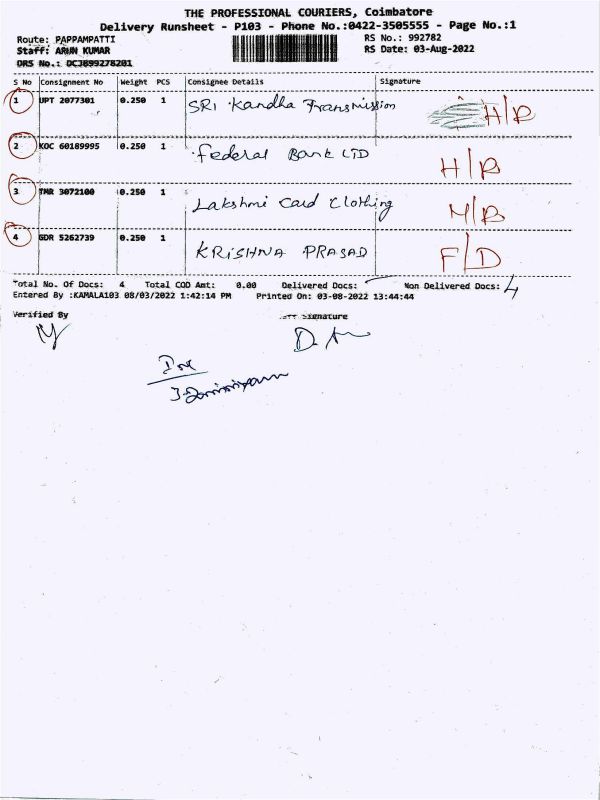 THE PROFESSIONAL COURIERS, Coimbatore
Delivery Runsheet - P103 - Phone No.:0422-3505555 - Page No.:1
Route: PAPPAMPATTI RS No.: 992782
Staff: ARUN KUMAR RS Date: 03-Aug-2022
DRS No.: DCJ899278201
S No Consignment No Weight PCS Consignee Details Signature
1 UPT 2077301 0.250 1 SRI Kandha Transmission H/R
2 KOC 60189995 0.250 1 Federal Bank LTD H/R
3 TMR 3072100 0.250 1 Lakshmi Card Clothing H/R
4 GDR 5262739 0.250 1 KRISHNA PRASAD F/D
Total No. Of Docs: 4 Total COD Amt: 0.00 Delivered Docs: Non Delivered Docs: 4
Entered By :KAMALA103 08/03/2022 1:42:14 PM Printed On: 03-08-2022 13:44:44
Verified By Signature